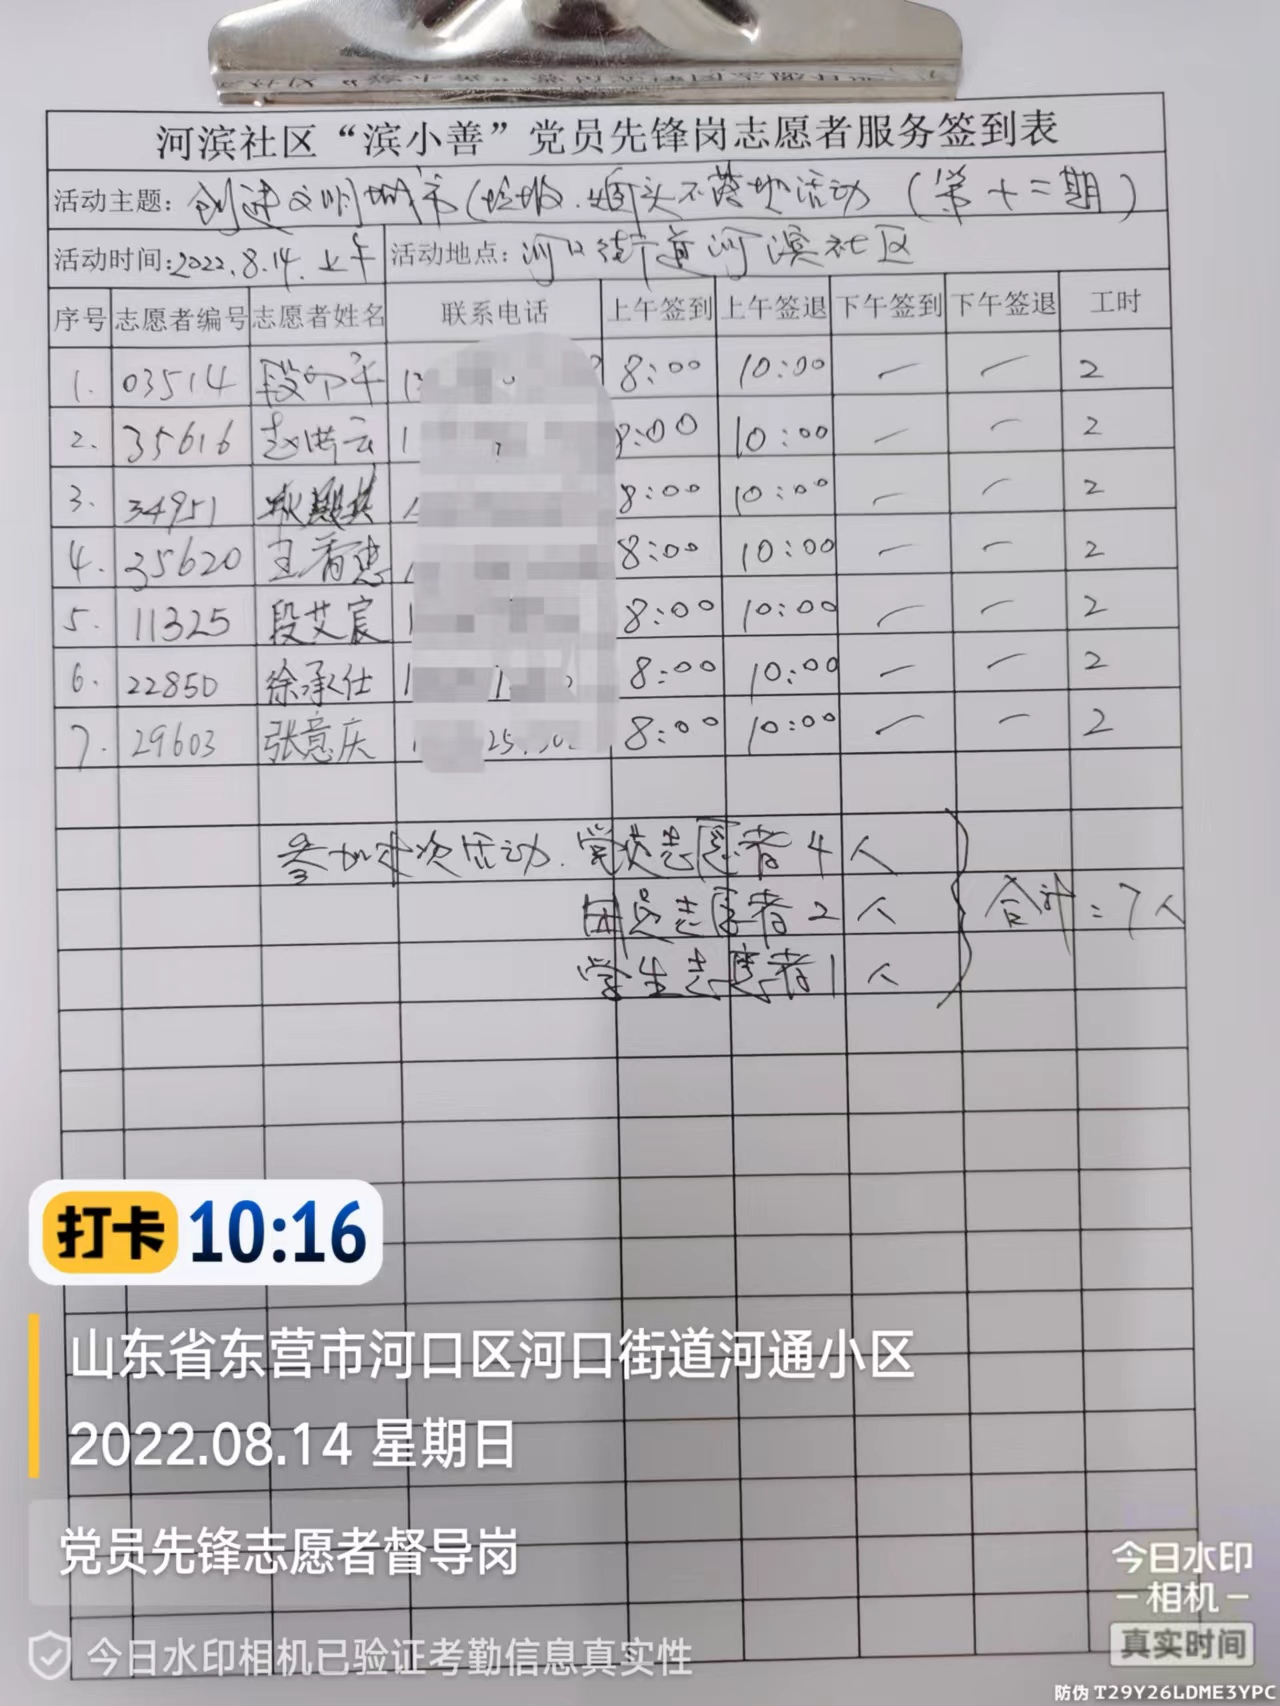 河滨社区“滨小善”党员先锋岗志愿者服务签到表
活动主题: 创建文明城市(垃圾.烟头不落地活动(第十二期)
活动时间:2022.8.14.上午 活动地点: 河口街道河滨社区
序号 志愿者编号 志愿者姓名 联系电话 上午签到 上午签退 下午签到 下午签退 工时
1. 03514 8:00 10:00 — — 2
2. 35616 赵洪云 8:00 10:00 — — 2
3. 34951 8:00 10:00 — — 2
4. 35620 王秀忠 8:00 10:00 — — 2
5. 11325 段艾宸 8:00 10:00 — — 2
6. 22850 徐承仕 8:00 10:00 — — 2
7. 29603 张意庆 8:00 10:00 — — 2
参加本次活动.党员志愿者4人
团员志愿者2人 合计:7人
学生志愿者1人
打卡 10:16
山东省东营市河口区河口街道河通小区
2022.08.14 星期日
党员先锋志愿者督导岗
今日水印相机已验证考勤信息真实性
今日水印
-相机-
真实时间
防伪 T29Y26LDME3YPC